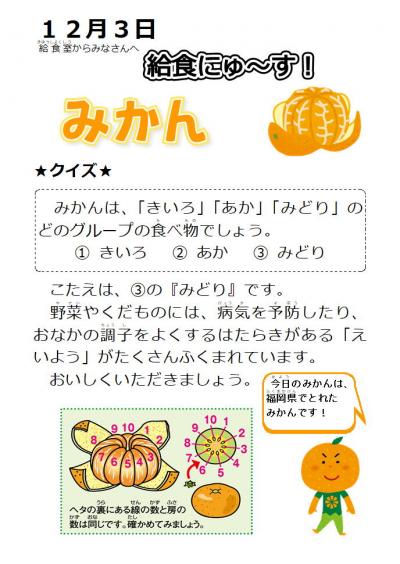 12月3日
給食室からみなさんへ
給食にゅ～す！
みかん
★クイズ★
みかんは、「きいろ」「あか」「みどり」の
どのグループの食べ物でしょう。
① きいろ ② あか ③ みどり
こたえは、③の『みどり』です。
野菜やくだものには、病気を予防したり、
おなかの調子をよくするはたらきがある「え
いよう」がたくさんふくまれています。
おいしくいただきましょう。
今日のみかんは、
福岡県でとれた
みかんです！
ヘタの裏にある線の数と房の
数は同じです。確かめてみましょう。